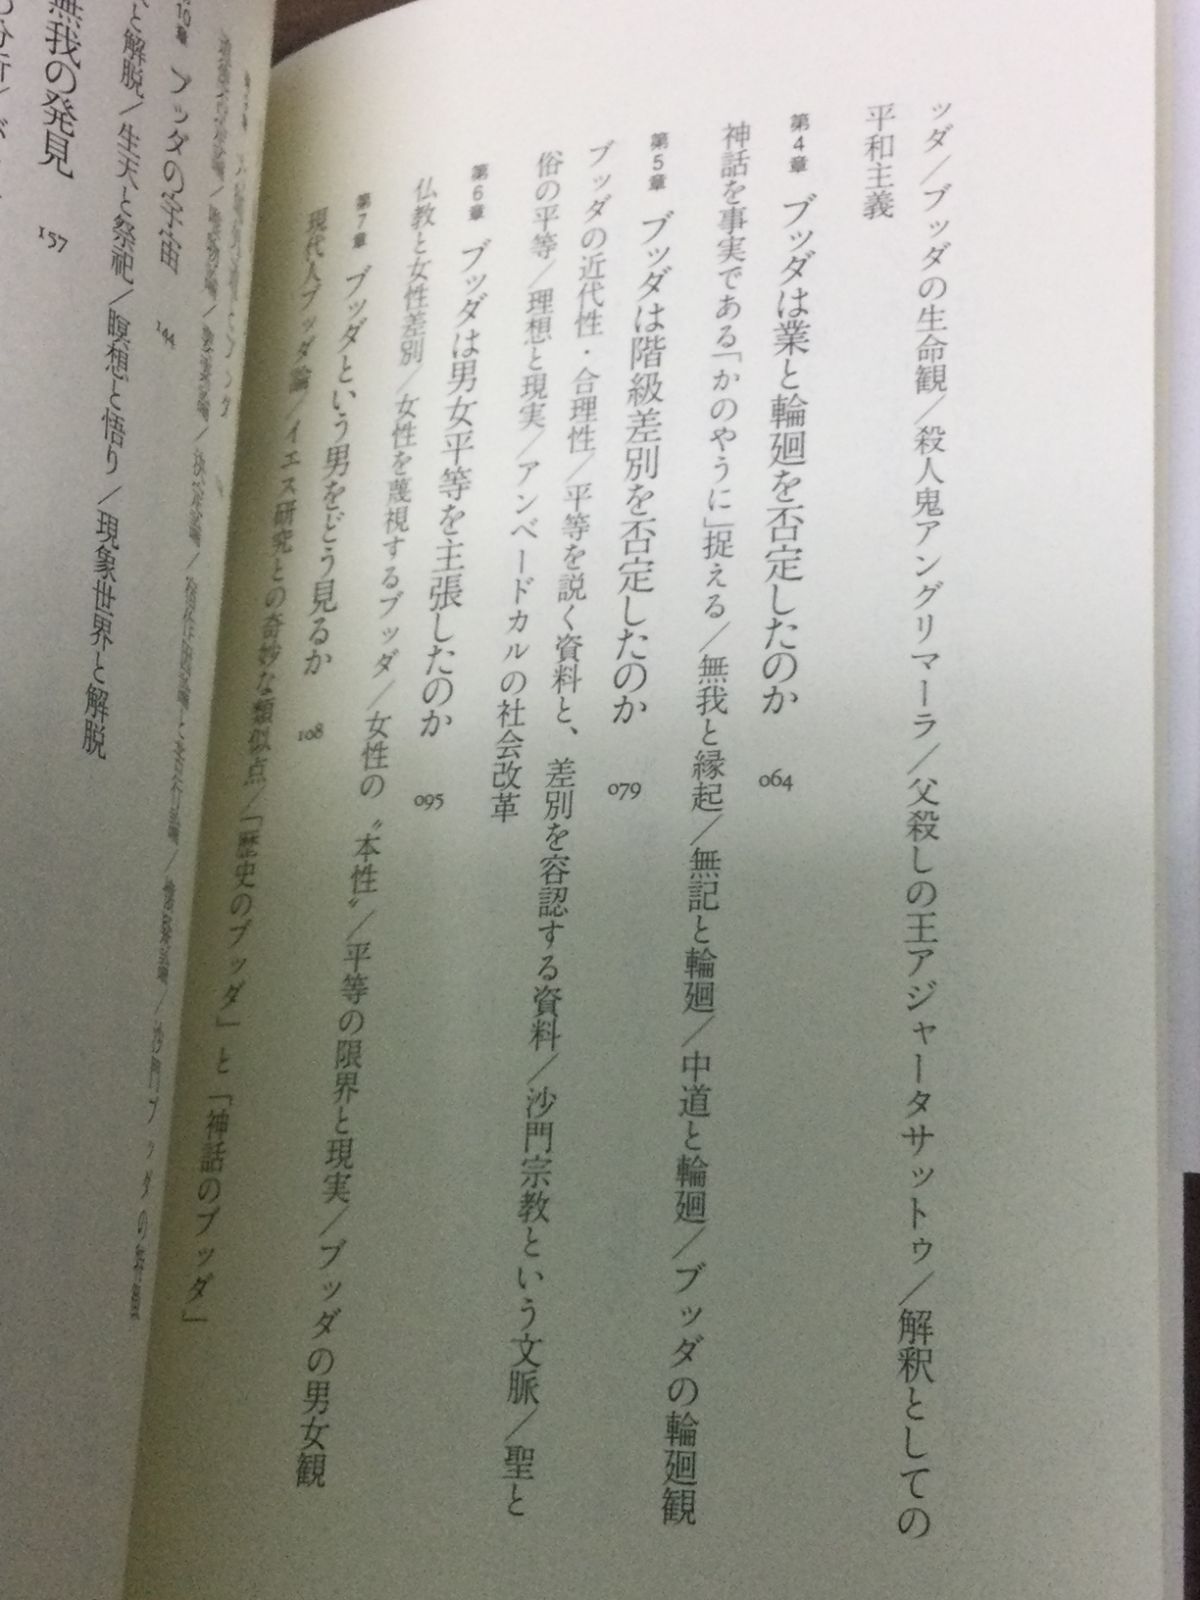 ッダ／ブッダの生命観／殺人鬼アングリマーラ／父殺しの王アジャータサットゥ／解釈としての
平和主義
第4章 ブッダは業と輪廻を否定したのか 064
神話を事実である「かのやうに」捉える／無我と縁起／無記と輪廻／中道と輪廻／ブッダの輪廻観
第5章 ブッダは階級差別を否定したのか 079
ブッダの近代性・合理性／平等を説く資料と、差別を容認する資料／沙門宗教という文脈／聖と
俗の平等／理想と現実／アンベードカルの社会改革
第6章 ブッダは男女平等を主張したのか 095
仏教と女性差別／女性を蔑視するブッダ／女性の〝本性〟／平等の限界と現実／ブッダの男女観
第7章 ブッダという男をどう見るか 108
現代人ブッダ論／イエス研究との奇妙な類似点／「歴史のブッダ」と「神話のブッダ」
10章 ブッダの宇宙 144
と解脱／生天と祭祀／瞑想と悟り／現象世界と解脱
無我の発見 157